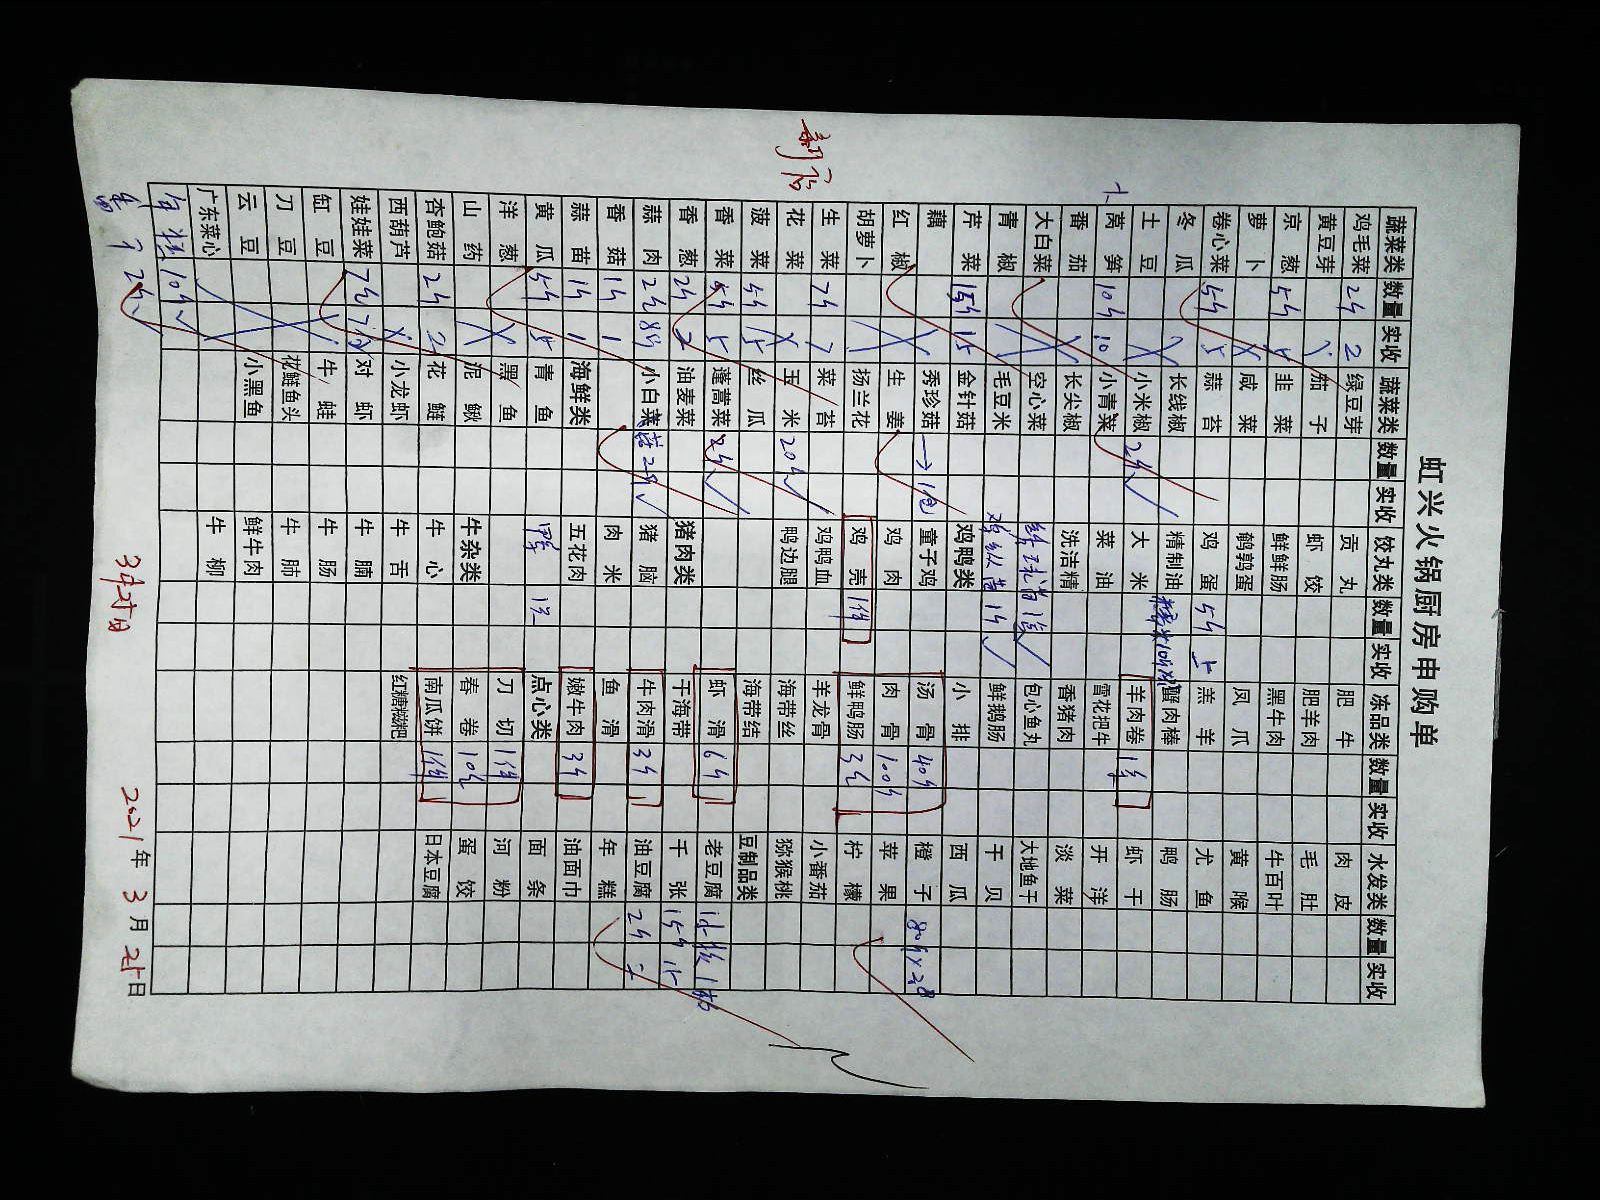 虹兴火锅厨房申购单
新店
蔬菜类 数量 实收 蔬菜类 数量 实收 饺丸类 数量 实收 冻品类 数量 实收 水发类 数量 实收
鸡毛菜 2斤 2 绿豆芽 贡丸 肥牛 肉皮
黄豆芽 茄子 虾饺 肥羊肉 毛肚
京葱 5斤 韭菜 鲜鲜肠 黑牛肉 牛百叶
萝卜 咸菜 鹌鹑蛋 凤爪 黄喉
卷心菜 5斤 5 蒜苔 鸡蛋 5斤 羔羊 尤鱼
冬瓜 长线椒 精制油 蟹肉棒 鸭肠
土豆 小米椒 2斤 大米 羊肉卷 虾干
莴笋 10斤 10 小青菜 菜油 雪花把牛 开洋
番茄 长尖椒 洗洁精 香猪肉 淡菜
大白菜 空心菜 包心鱼丸 大地鱼干
青椒 毛豆米 鲜鹅肠 干贝
芹菜 15斤 15 金针菇 鸡鸭类 小排 西瓜
藕 秀珍菇 →1包 童子鸡 汤骨 40斤 橙子
红椒 生姜 鸡肉 肉骨 100斤 苹果
胡萝卜 扬兰花 鸡壳 1件 鲜鸭肠 3斤 柠檬
生菜 7斤 7 菜苔 鸡鸭血 羊龙骨 小番茄
花菜 玉米 20斤 鸭边腿 海带丝 猕猴桃
菠菜 5斤 5 丝瓜 海带结 豆制品类
香菜 5斤 5 蓬蒿菜 2斤 虾滑 6斤 老豆腐
香葱 2斤 2 油麦菜 猪肉类 干海带 千张 15斤 15
蒜肉 2斤 小白菜 猪脑 牛肉滑 3斤 油豆腐 2斤 2
香菇 1斤 1 肉米 鱼滑 年糕
蒜苗 1斤 1 海鲜类 五花肉 嫩牛肉 3斤 油面巾
黄瓜 5斤 5 青鱼 点心类 面条
洋葱 黑鱼 刀切 1件 河粉
山药 泥鳅 牛杂类 春卷 10斤 蛋饺
杏鲍菇 2斤 2 花鲢 牛心 南瓜饼 1件 日本豆腐
西葫芦 小龙虾 牛舌 红糖糍粑
娃娃菜 7斤 对虾 牛腩
缸豆 牛蛙 牛肠
刀豆 花鲢鱼头 牛肺
云豆 小黑鱼 鲜牛肉
广东菜心 牛柳
年糕 10斤
2斤
3月25日
2021年3月25日